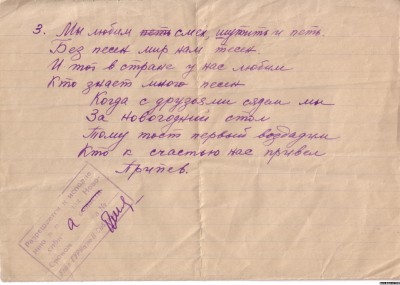 3. Мы любим петь смех, шутить и петь.
Без песен мир нам тесен
И тот в стране у нас любим
Кто знает много песен
Когда с друзьями сядем мы
За новогодний стол
Тому тост первый воздадим
Кто к счастью нас привел
Припев.